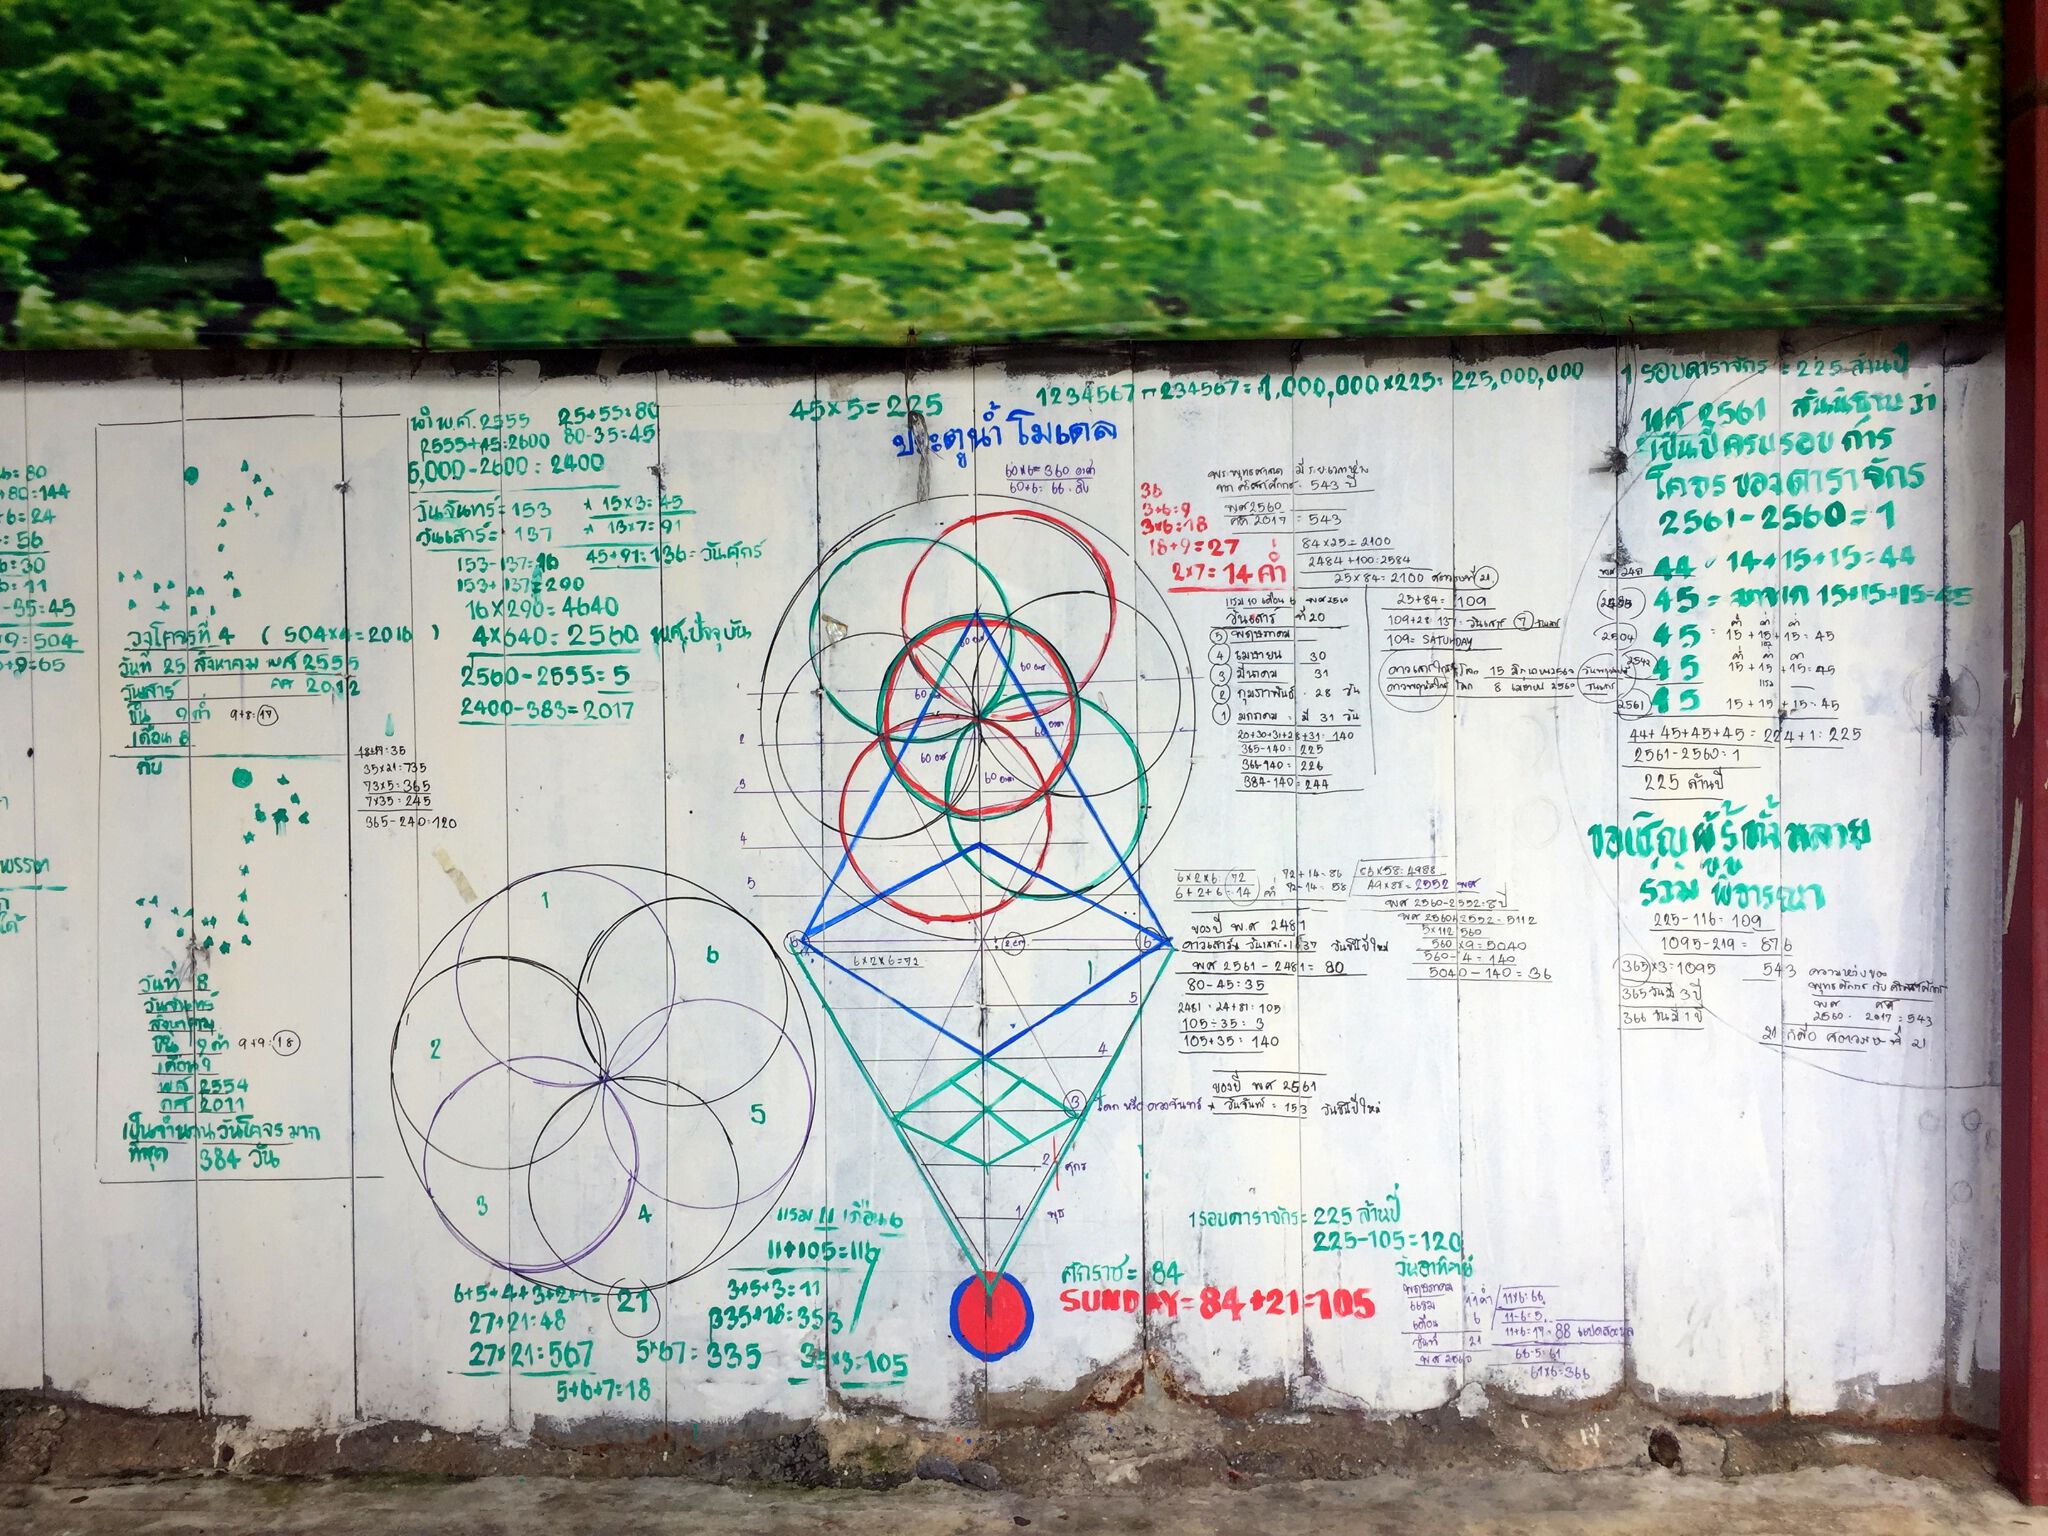 45×5=225
1234567-234567=1,000,000×225=225,000,000
ประตูน้ำ โมเดล
60×6=360 องศา
60+6=66
80
80=144
6=24
56
30
11
-35=45
×9=504
+9=65
พรรษา
ได้
วงโคจรที่ 4 (504×4=2016)
วันที่ 25 สิงหาคม พศ 2555
วันเสาร์ คศ 2012
ขึ้น 9 ค่ำ 9+8=17
เดือน 8
กับ
วันที่ 8
วันจันทร์
สิงหาคม
ขึ้น 9 ค่ำ 9+9=18
เดือน 9
พศ 2554
คศ 2011
เป็นจำนวนวันโคจรมาก
ที่สุด 384 วัน
18+17=35
35×21=735
73×5=365
7×35=245
365-240=120
นำ พ.ศ. 2555 25+55=80
2555+45=2600 80-35=45
5,000-2600=2400
วันจันทร์=153 * 15×3=45
วันเสาร์=137 * 13×7=91
153-137=16 45+91=136=วันศุกร์
153+137=290
16×290=4640
4×640=2560 พ.ศ. ปัจจุบัน
2560-2555=5
2400-383=2017
36
3+6=9
3×6=18
18+9=27
2×7=14 ค่ำ
543 ปี
พศ 2560
คศ 2017 = 543
84×25=2100
2484+100=2584
25×84=2100 ศตวรรษที่ 21
25+84=109
109+28=137=วันเสาร์ 7
109=SATURDAY
15 มิถุนายน 2560
8 เมษายน 2560
แรม 10 เดือน 6 พศ 2560
วันเสาร์ ที่ 20
5 พฤษภาคม
4 เมษายน 30
3 มีนาคม 31
2 กุมภาพันธ์ 28 วัน
1 มกราคม มี 31 วัน
20+30+31+28+31=140
365-140=225
366-140=226
384-140=244
60 องศา
60 องศา
60 องศา
60 องศา
60 องศา
60 องศา
1
2
3
4
5
6
6
6×2×6=72
2 cm
1
5
4
3
2 ศุกร์
1 พุธ
1
2
3
4
5
6
6+5+4+3+2+1=21
27+21=48
27×21=567
5+6+7=18
5×67=335
แรม 11 เดือน 6
11+105=116
3+5+3=11
335+18=353
35×3=105
6×2×6=72
6+2+6=14 ค่ำ
72+14=86
72-14=58
86×58=4988
49×88=2552 พศ
พศ 2560-2552=8 ปี
พศ 2560+2552=5112
5×112=560
560×9=5040
560÷4=140
5040-140=36
ของปี พศ 2481
วันเสาร์=137 วันขึ้นปีใหม่
พศ 2561-2481=80
80-45=35
2481=24+81=105
105÷35=3
105+35=140
ของปี พศ 2561
โลก หรือ ดวงจันทร์ * วันจันทร์=153 วันขึ้นปีใหม่
1 รอบดาราจักร=225 ล้านปี
225-105=120
วันอาทิตย์
ศักราช=84
SUNDAY=84+21=105
พฤษภาคม
แรม 11 ค่ำ
เดือน 6
วันที่ 21
พศ 2560
11×6=66
11-6=5
11+6=17=88
66-5=61
61×6=366
1 รอบดาราจักร=225 ล้านปี
พศ 2561 สันนิษฐานว่า
เป็นปีครบรอบการ
โคจรของดาราจักร
2561-2560=1
44 = 14+15+15=44
2485 45 = มาจาก 15+15+15=45
ค่ำ ค่ำ ค่ำ
2504 45 = 15+15+15=45
2542 45 15+15+15=45
2561 45 15+15+15=45
44+45+45+45+45=224+1=225
2561-2560=1
225 ล้านปี
ขอเชิญผู้รู้ทั้งหลาย
ร่วมพิจารณา
225-116=109
1095-219=876
365×3=1095
365 วันมี 3 ปี
366 วันมี 1 ปี
543 ความห่างของ
พุทธศักราช กับ คริสตศักราช
พศ คศ
2560-2017=543
21 ก็คือ ศตวรรษที่ 21